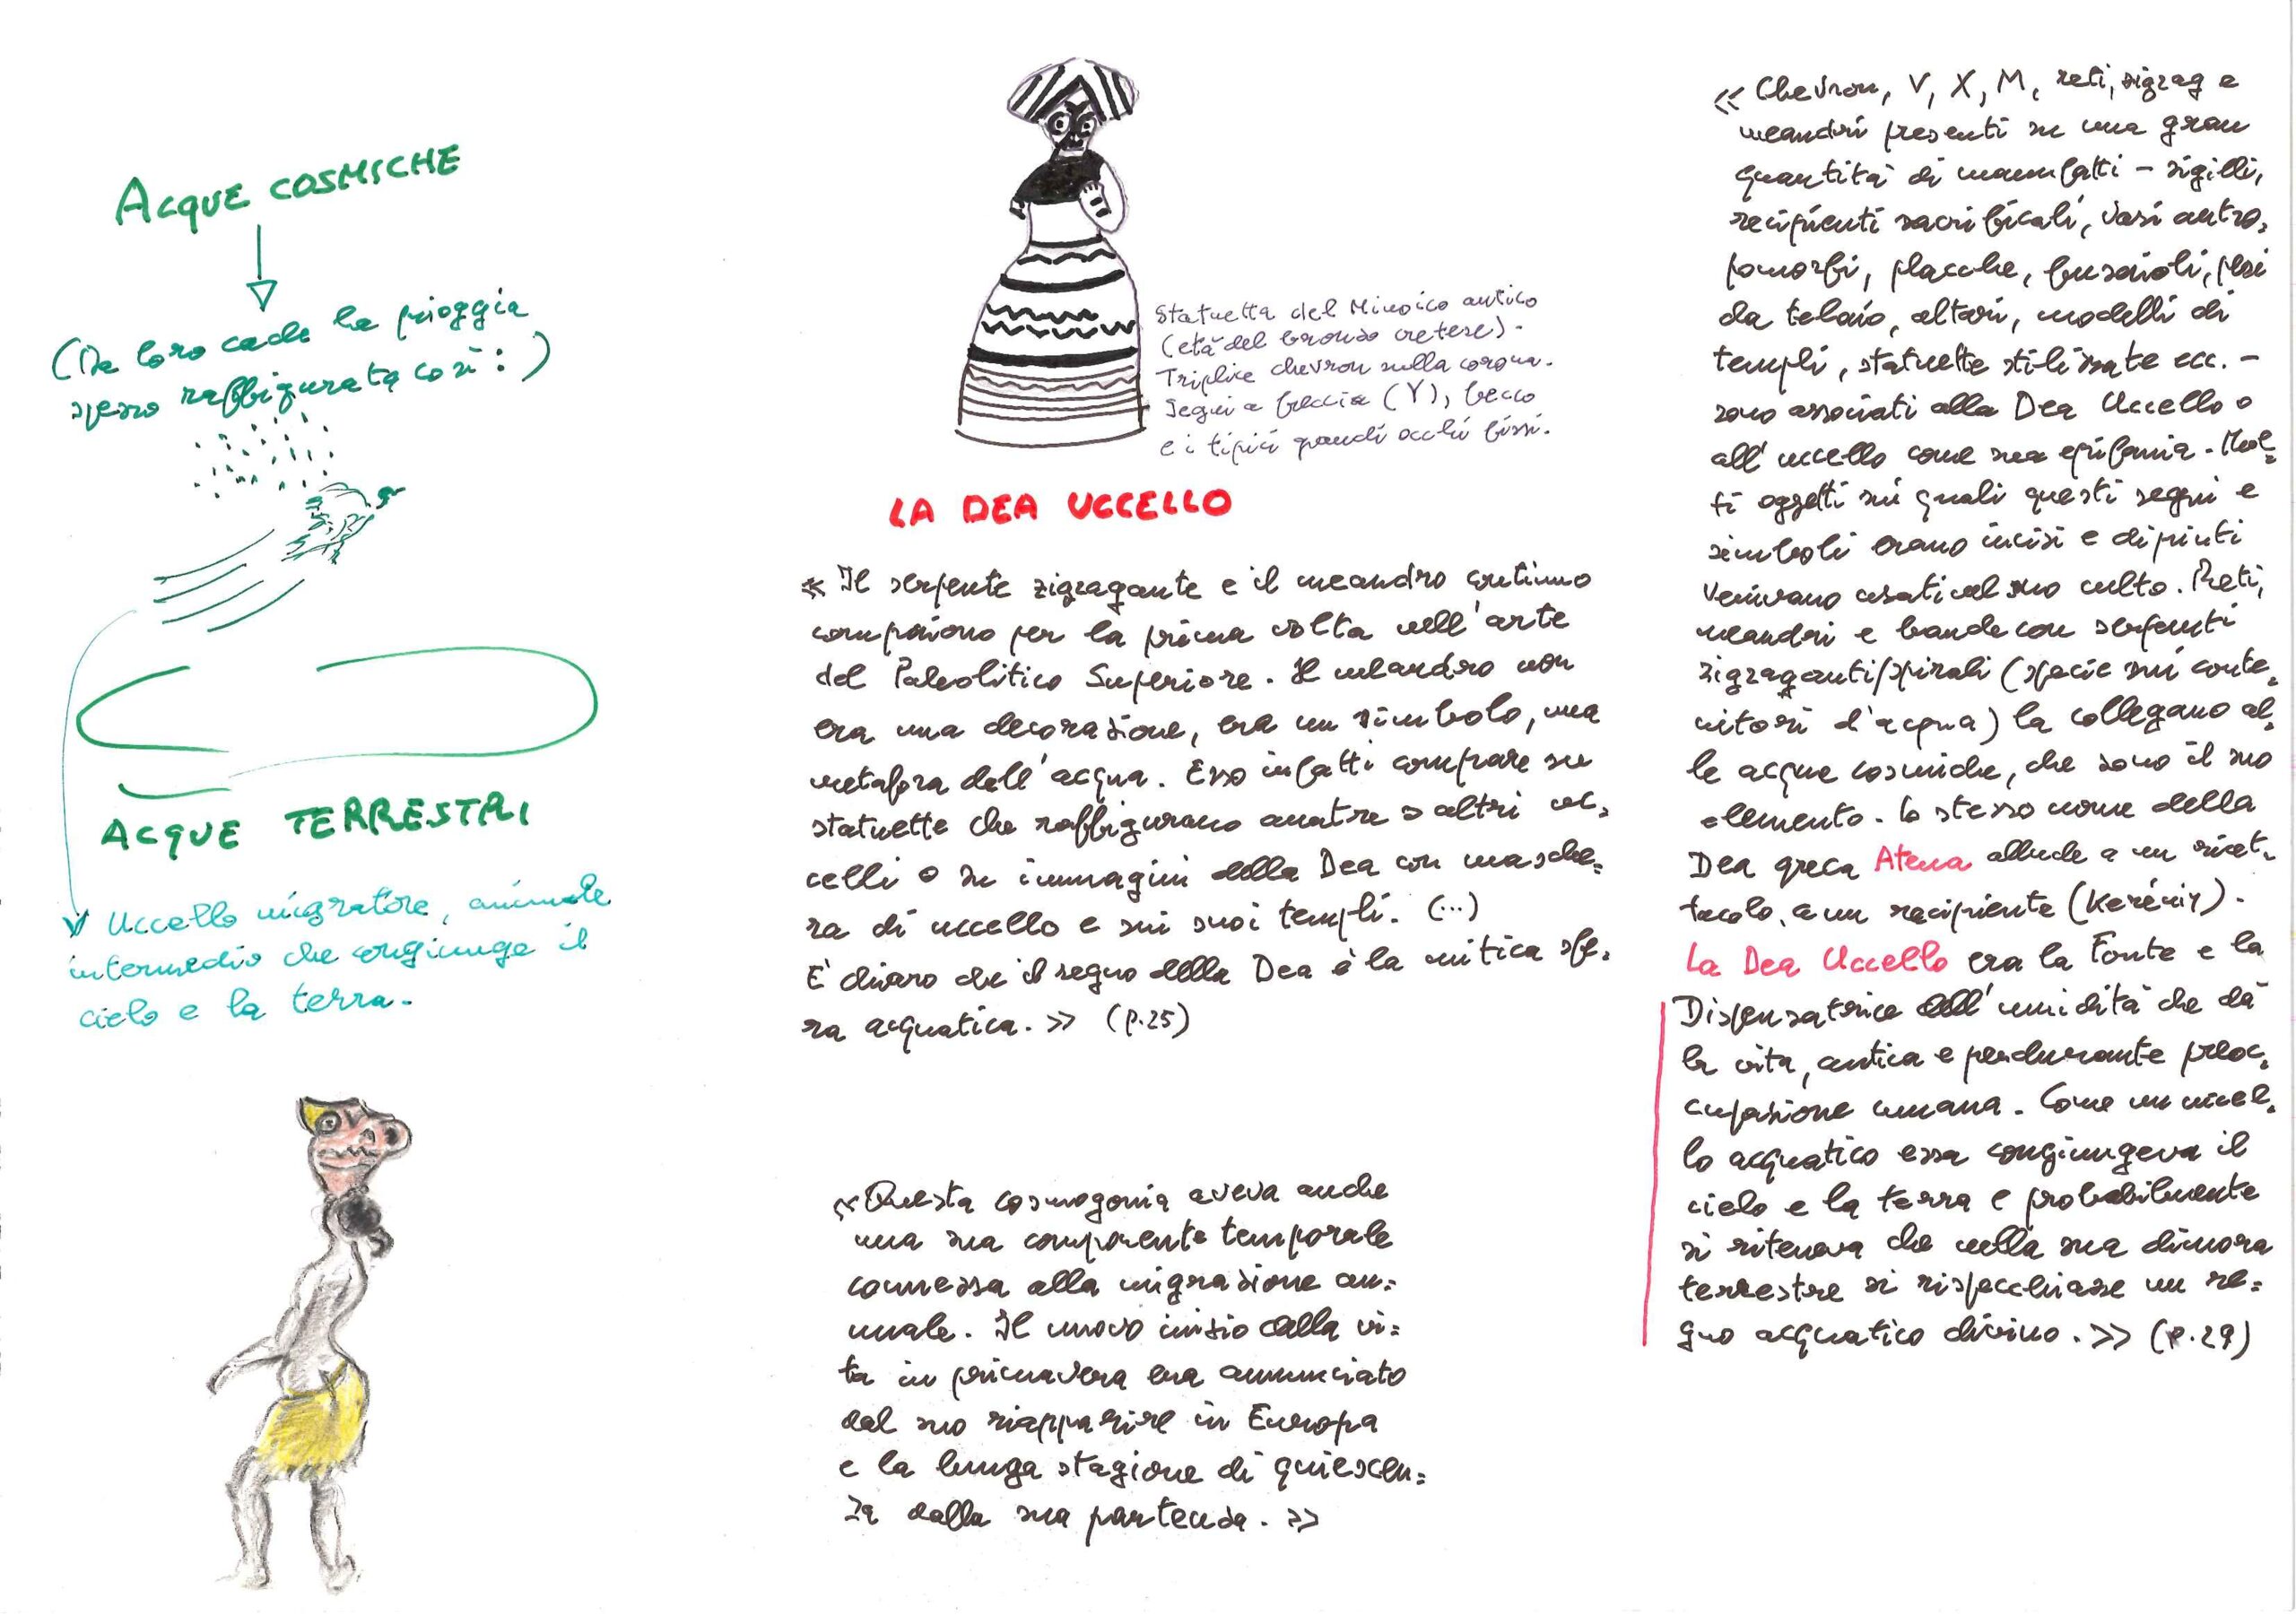 ACQUE COSMICHE
(Da loro cade la pioggia
spesso raffigurata così:)
ACQUE TERRESTRI
Uccello migratore, animale
intermedio che congiunge il
cielo e la terra.
Statuetta del Minoico antico
(età del bronzo cretese).
Triplice chevron sulla corona.
Segni a freccia (Y), becco
e i tipici grandi occhi fissi.
LA DEA UCCELLO
« Il serpente zigzagante e il meandro continuo
compaiono per la prima volta nell'arte
del Paleolitico Superiore. Il meandro non
era una decorazione, era un simbolo, una
metafora dell'acqua. Esso infatti compare su
statuette che raffigurano anatre o altri uc=
celli o su immagini della Dea con masche=
ra di uccello e sui suoi templi. (...)
E' chiaro che il regno della Dea è la mitica sfe=
ra acquatica. » (p.25)
« Questa cosmogonia aveva anche
una sua componente temporale
connessa alla migrazione an=
nuale. Il nuovo inizio della vi=
ta in primavera era annunciato
dal suo riapparire in Europa
e la lunga stagione di quiescen=
za dalla sua partenza. »
« Chevron, V, X, M, reti, zigzag e
meandri presenti su una gran
quantità di manufatti - sigilli,
recipienti sacrificali, vasi antro=
pomorfi, placche, fusaioli, pesi
da telaio, altari, modelli di
templi, statuette stilizzate ecc. -
sono associati alla Dea Uccello o
all'uccello come sua epifania. Mol=
ti oggetti sui quali questi segni e
simboli erano incisi e dipinti
venivano usati nel suo culto. Reti,
meandri e bande con serpenti
zigzaganti/spirali (specie sui conte=
nitori d'acqua) la collegano al=
le acque cosmiche, che sono il suo
elemento. Lo stesso nome della
Dea greca Atena allude a un ricet=
tacolo, a un recipiente (Kerényi).
La Dea Uccello era la Fonte e la
Dispensatrice dell'umidità che dà
la vita, antica e perdurante preoc=
cupazione umana. Come un uccel=
lo acquatico essa congiungeva il
cielo e la terra e probabilmente
si riteneva che nella sua dimora
terrestre si rispecchiasse un re=
gno acquatico divino. » (p.29)